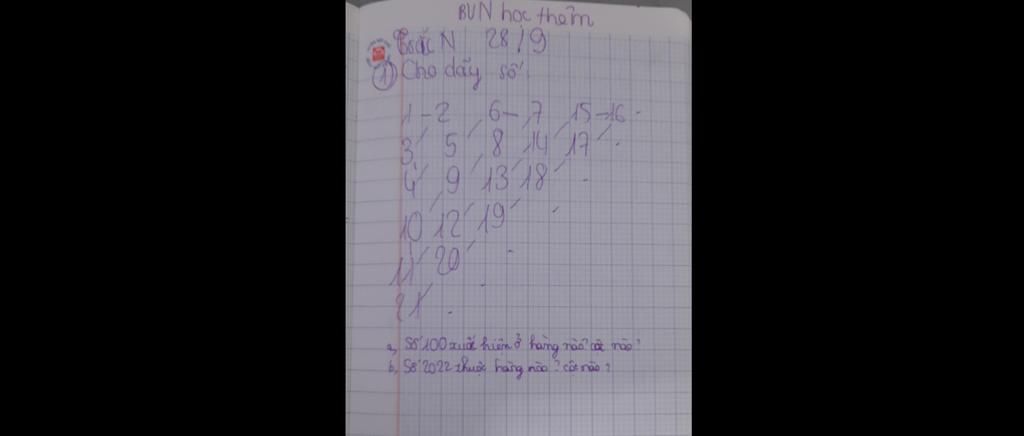 BVN học thêm
28/9
1) Cho dãy số:
1 - 2 6 - 7 15 - 16
3 5 8 14 17
4 9 13 18
10 12 19
11 20
21
a, Số 100 xuất hiện ở hàng nào? cột nào?
b, Số 2022 thuộc hàng nào? cột nào?